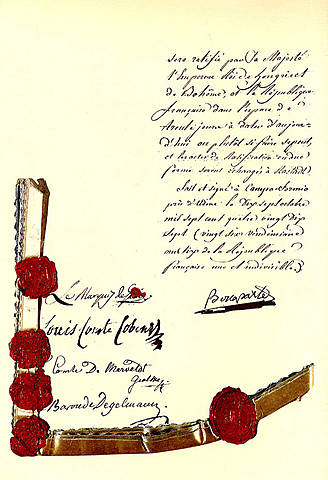 sera ratifié par Sa Majesté
l'Empereur Roi de hongrie et
de bohême, et la République
française dans l'espace de
trente jours à dater d'aujour
d'hui ou plutôt si faire se peut,
et les actes de Ratification en due
forme seront échangés à Rastadt.
fait et signé à Campo-formio
près d'Udine le Dix sept octobre
mil sept cent quatre vingt Dix
sept (vingt six vendémiaire
an six de la République
française une et indivisible.)
Le Marquis de
Bonaparte
Louis Comte Cobenzl
Comte De Merveldt
Baron de Degelmann